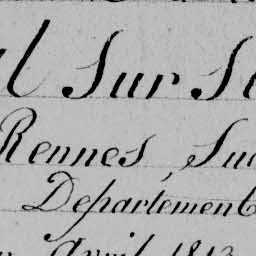 Sur
Rennes,
Departement
Avril 1813